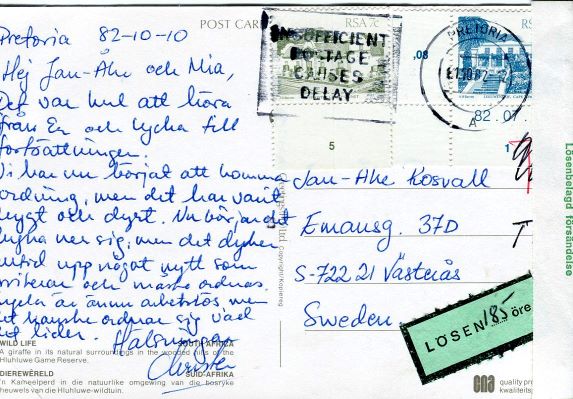 POST CARD
RSA 7c
RSA
INSUFFICIENT
POSTAGE
CAUSES
DELAY
.08
PRETORIA
82.07.
A
5
1
Pretoria 82-10-10
Hej Jan-Åke och Mia,
Det var kul att höra
från Er och lycka till
fortsättningen.
Vi har nu börjat att komma
ordning, men det har varit
tyngt och dyrt. Nu börjar det
lugna ner sig, men det dyker
alltid upp något nytt som
irriterar och måste ordnas.
är ännu arbetslös men
det kanske ordnar sig vad
det lider. Hälsningar
Christer
Jan-Åke Kosvall
Emausg. 37D
S-722 21 Västerås
Sweden
T
LÖSEN 185 öre
Lösenbelagd försändelse
Copyright/Kopiereg
WILD LIFE
SOUTH AFRICA
A giraffe in its natural surroundings in the wooded hills of the
Hluhluwe Game Reserve.
DIEREWÊRELD
SUID-AFRIKA
'n Kameelperd in die natuurlike omgewing van die bosryke
heuwels van die Hluhluwe-wildtuin.
cna
quality pro
kwaliteits